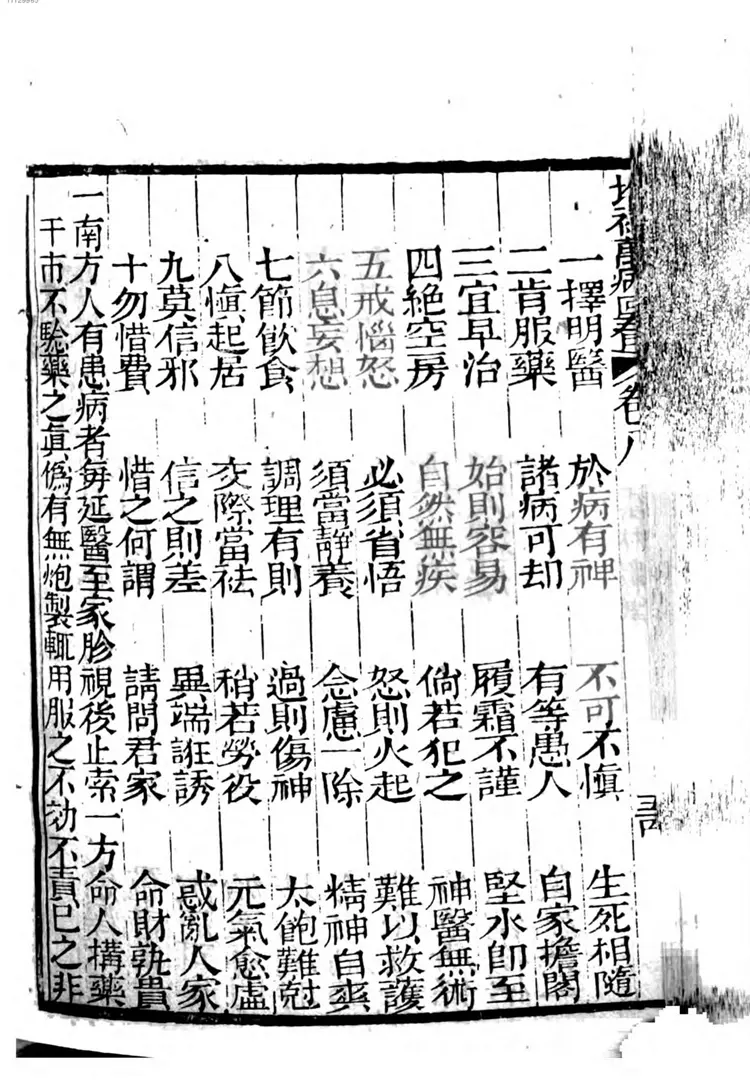 11129985
增補萬病回春 卷八
一擇明醫 於病有裨 不可不愼 生死相隨
二肯服藥 諸病可却 有等愚人 自家擔閣
三宜早治 始則容易 履霜不謹 堅氷卽至
四絶空房 自然無疾 倘若犯之 神醫無術
五戒惱怒 必須省悟 怒則火起 難以救護
六息妄想 須當靜養 念慮一除 精神自爽
七節飮食 調理有則 過則傷神 太飽難尅
八愼起居 交際當祛 稍若勞役 元氣愈虛
九莫信邪 信之則差 異端誑誘 惑亂人家
十勿惜費 惜之何謂 請問君家 命財孰貴
一南方人有患病者每延醫至家胗視後止索一方命人搆藥
于市不驗藥之眞僞有無炮製輒用服之不効不責己之非